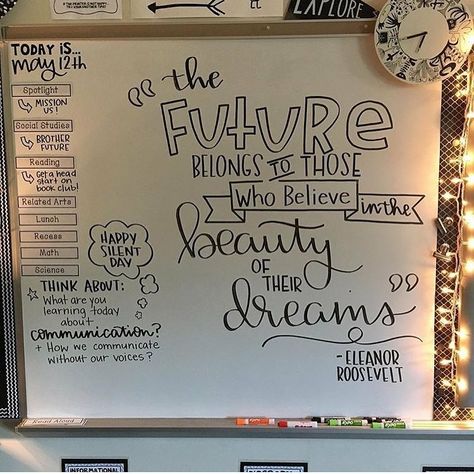 EXPLORE
TODAY IS...
may 12th
Spotlight
MISSION
US!
Social Studies
BROTHER
FUTURE
Reading
Get a head
start on
book club!
Related Arts
Lunch
Recess
Math
Science
HAPPY
SILENT
DAY
THINK ABOUT:
What are you
learning today
about
communication?
+ How we communicate
without our voices?
"the
FUTURE
BELONGS TO THOSE
WHO BELIEVE in the
beauty
OF
THEIR
dreams"
- ELEANOR
ROOSEVELT
Read Aloud
EXPO
EXPO
EXPO
INFORMATIONAL